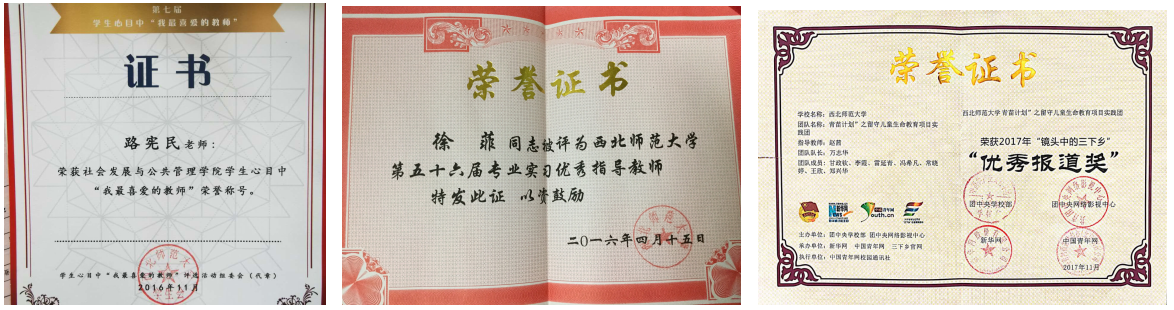 第七届
学生心目中“我最喜爱的教师”
证书
路宪民老师：
荣获社会发展与公共管理学院学生心目中
“我最喜爱的教师”荣誉称号。
学生心目中“我最喜爱的教师”评选活动组委会（代章）
2016年11月
荣誉证书
徐菲同志被评为西北师范大学
第五十六届专业实习优秀指导教师
特发此证 以资鼓励
二〇一六年四月十五日
荣誉证书
学校名称：西北师范大学
团队名称：青苗计划”之留守儿童生命教育项目实
践团
指导教师：赵茜
团队队长：万志华
团队成员：甘政钦、李霞、雷延青、冯希凡、常晓
婷、王欣、郑兴华
西北师范大学 青苗计划”之留守儿童生命教育项目实践团
荣获2017年“镜头中的三下乡”
“优秀报道奖”
团中央学校部
团中央网络影视中心
新华网
中国青年网
2017年11月
Youth.cn
主办单位：团中央学校部 团中央网络影视中心
承办单位：新华网 中国青年网 三下乡官网
执行单位：中国青年网校园通讯社